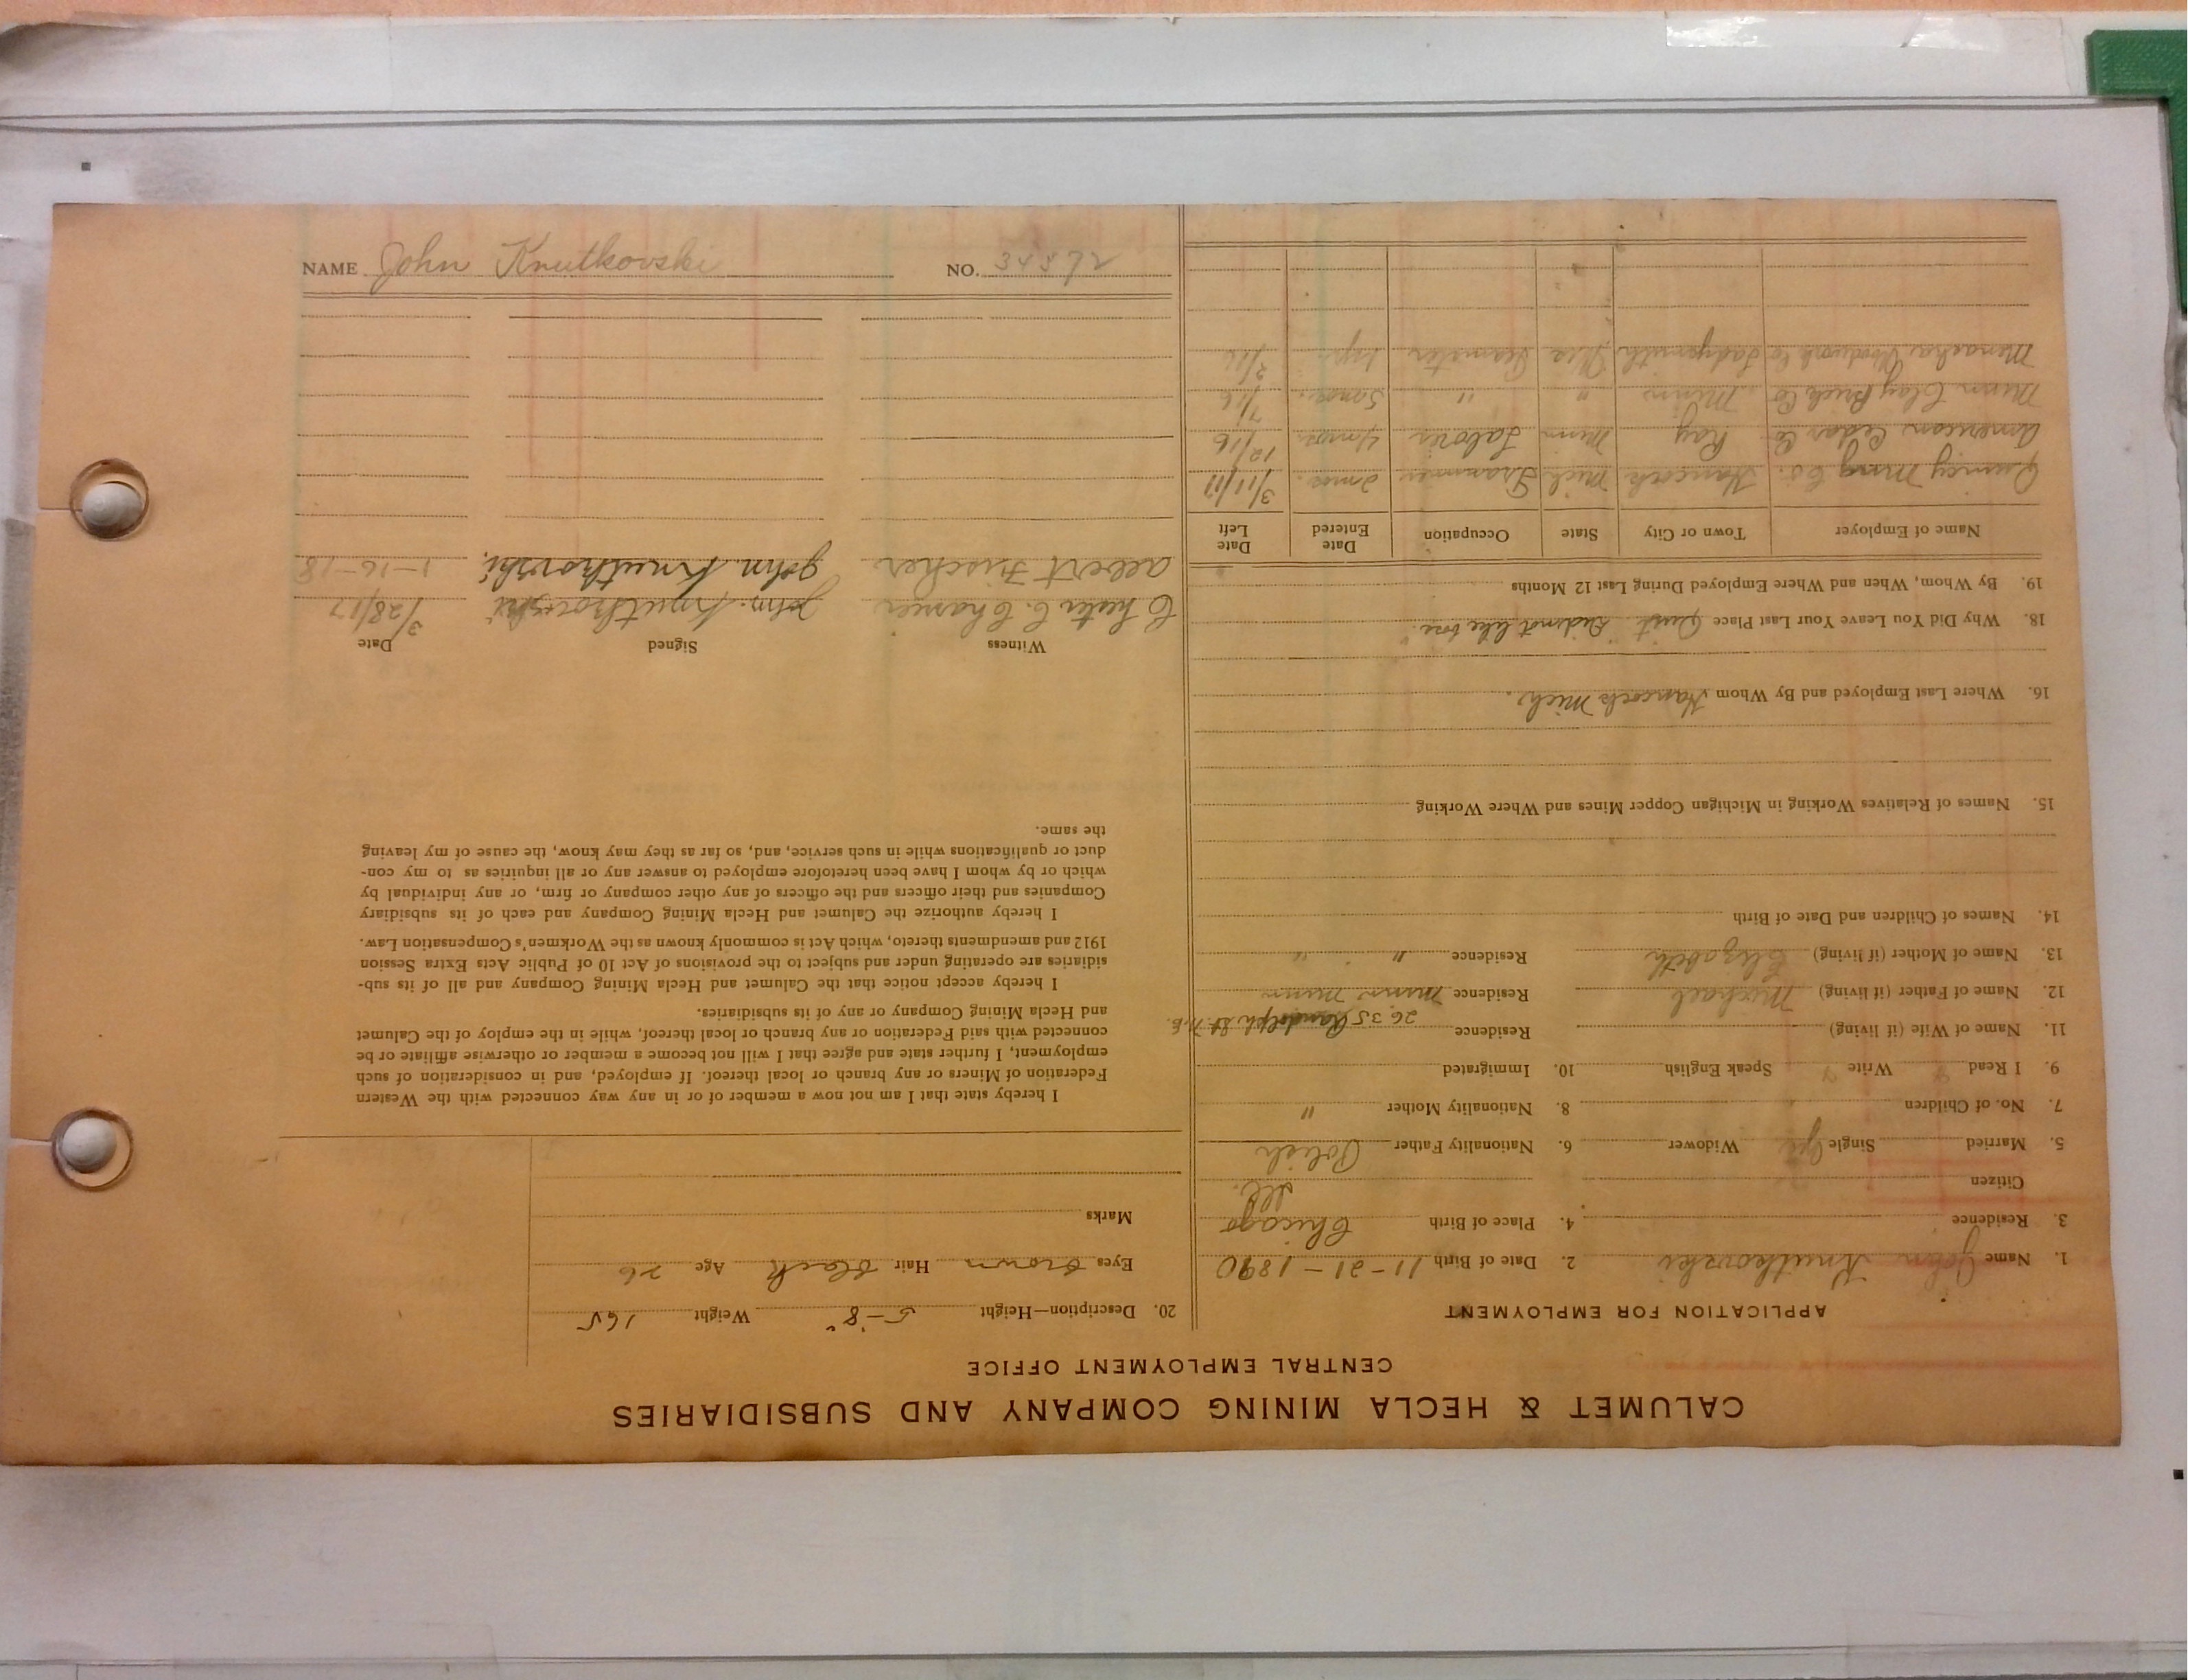 CALUMET & HECLA MINING COMPANY AND SUBSIDIARIES
CENTRAL EMPLOYMENT OFFICE
APPLICATION FOR EMPLOYMENT
1. Name John Knutkowski 2. Date of Birth 11-21-1890
3. Residence 4. Place of Birth Chicago
Ill.
Citizen
5. Married Single Yes Widower 6. Nationality Father Polish
7. No. of Children 8. Nationality Mother "
9. I Read Write Speak English 10. Immigrated
11. Name of Wife (if living) Residence
2635 Randolph St. N.E.
12. Name of Father (if living) Michael Residence Minn Minn
13. Name of Mother (if living) Elizabeth Residence " "
14. Names of Children and Date of Birth
15. Names of Relatives Working in Michigan Copper Mines and Where Working
16. Where Last Employed and By Whom Hancock Mich.
18. Why Did You Leave Your Last Place Quit "Did not like
19. By Whom, When and Where Employed During Last 12 Months
Name of Employer Town or City State Occupation Date Entered Date Left
Quincy Mng Co. Hancock Mich Trammer 2 mos. 3/11/17
American Cedar Co Ray Minn Laborer 4 mos. 12/16
Minn Clay Brick Co Minn " " 5 mos. 7/16
Menasha Woodwork Co Ladysmith Wis Teamster 1 yr. 2/16
20. Description—Height 5-8" Weight 165
Eyes brown Hair black Age 26
Marks
I hereby state that I am not now a member of or in any way connected with the Western
Federation of Miners or any branch or local thereof. If employed, and in consideration of such
employment, I further state and agree that I will not become a member or otherwise affiliate or be
connected with said Federation or any branch or local thereof, while in the employ of the Calumet
and Hecla Mining Company or any of its subsidiaries.
I hereby accept notice that the Calumet and Hecla Mining Company and all of its sub-
sidiaries are operating under and subject to the provisions of Act 10 of Public Acts Extra Session
1912 and amendments thereto, which Act is commonly known as the Workmen's Compensation Law.
I hereby authorize the Calumet and Hecla Mining Company and each of its subsidiary
Companies and their officers and the officers of any other company or firm, or any individual by
which or by whom I have been heretofore employed to answer any or all inquiries as to my con-
duct or qualifications while in such service, and, so far as they may know, the cause of my leaving
the same.
Witness Signed Date
Chester C. John. Knutkovski 3/28/17
Albert Fischer John Knutkovski. 1-16-18
NAME John Knutkovski NO. 34572